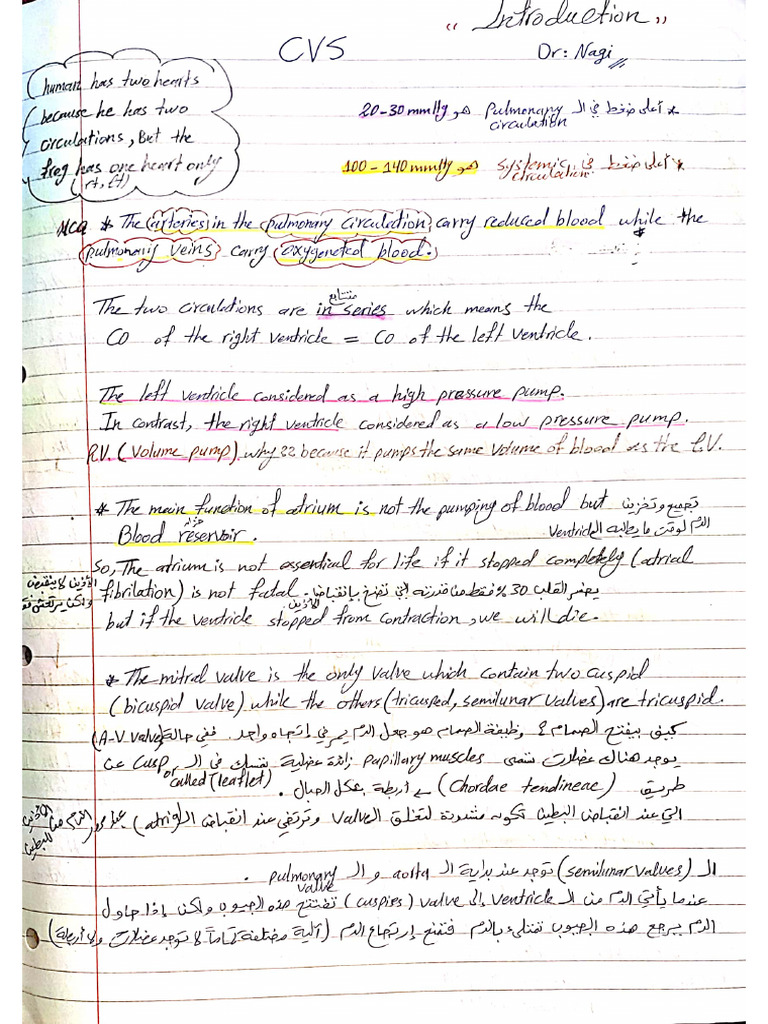 "Introduction"
CVS
Dr: Nagi
human has two hearts
because he has two
circulations, But the
frog has one heart only
(rt, Lt)
* أعلى ضغط في الـ pulmonary circulation هو 20-30 mmHg
* أعلى ضغط في systemic circulation هو 100-140 mmHg
MCQ * The arteries in the pulmonary circulation carry reduced blood while the
pulmonary veins carry oxygeneted blood.
متتابع
The two circulations are in series which means the
CO of the right ventricle = CO of the left ventricle.
The left ventricle considered as a high pressure pump.
In contrast, the right ventricle considered as a low pressure pump.
R.V. (Volume pump) why ?? because it pumps the same volume of blood as the L.V.
* The main function of atrium is not the pumping of blood but تجميع وتخزين
Blood reservoir. خزان الدم لوقت ما يطلبه الـ Ventricle
So, The atrium is not essential for life if it stopped completely (atrial
fibrilation) is not fatal. يخسر القلب 30% فقط من قدرته التي تضخ بانقباض الأذين
الأذين لا ينقبض
ولكن يرتعش فقط
but if the ventricle stopped from contraction, we will die.
* The mitral valve is the only valve which contain two cuspid
(bicuspid valve) while the others (tricusped, semilunar valves) are tricuspid.
كيف بيفتح الصمام ؟ وظيفة الصمام هو جعل الدم يمر في إتجاه واحد. ففي حالة (A-V valve)
يوجد هناك عضلات تسمى papillary muscles زائدة عضلية تمسك في الـ cusp عن
or called (leaflet)
طريق (Chordae tendineae) أربطة بشكل الحبال.
التي عند انقباض البطين تكون مشدودة لتغلق الـ valve وترتخي عند انقباض الـ (atria)
الدم من الأذين
للبطين
الـ (semilunar valves) توجد عند بداية الـ aorta والـ pulmonary valve.
عندما يأتي الدم من الـ ventricle إلى valve (cuspies) تفتتح هذه الجيوب ولكن إذا حاول
الدم يرجع هذه الجيوب تمتلىء بالدم فتمنع إرتجاع الدم (آلية مختلفة تماماً لا توجد عضلات ولا أربطة)